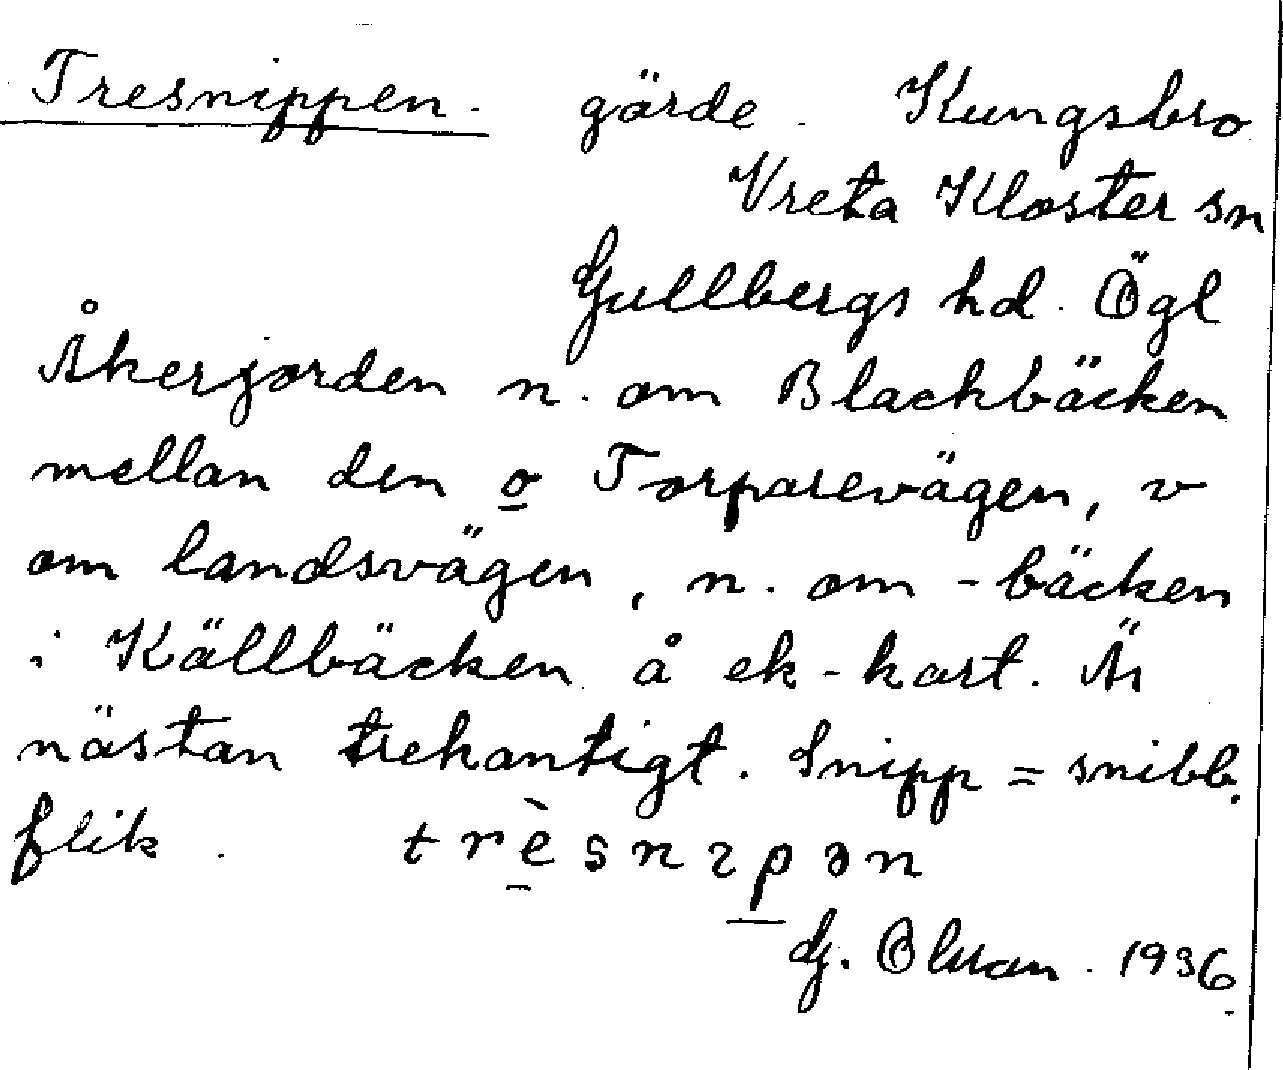 Tresnippen. gärde. Kungsbro
Vreta Kloster sn
Gullbergs hd. Ögl
Åkerjorden n. om Blackbäcken
mellan den o Torparevägen, v
om landsvägen, n. om -bäcken
i Källbäcken å ek-kart. Är
nästan trekantigt. Snipp = snibb,
flik. trèsnɪpən
G. Olsson. 1936